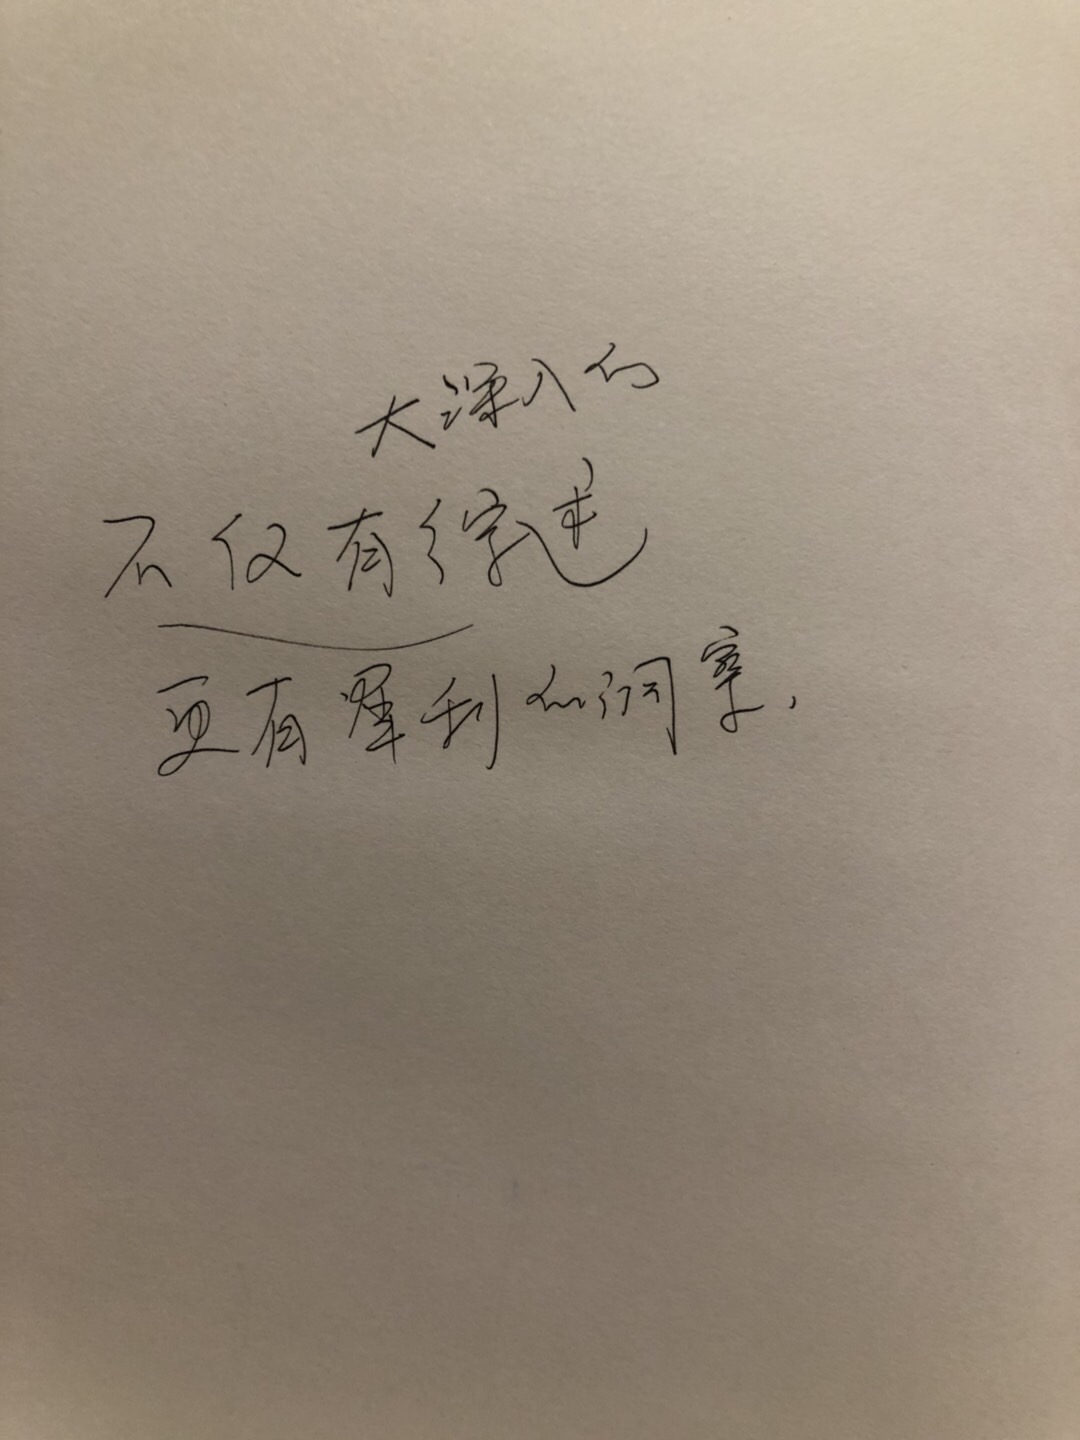 大深入的
不仅有综述
更有犀利的洞察,